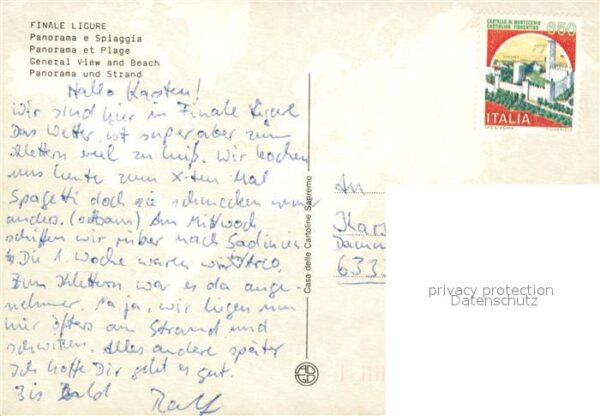 FINALE LIGURE
Panorama e Spiaggia
Panorama et Plage
General View and Beach
Panorama und Strand
Hallo Karsten!
Wir sind hier in Finale Ligure
Das Wetter ist super aber zum
klettern viel zu heiß. Wir kochen
uns heute zum x-ten Mal
Spagetti doch sie schmecken immer
anders. (seltsam) Am Mittwoch
schiffen wir rüber nach Sadinien
Die 1. Woche waren wir in Arco,
Zum Klettern war es da ange-
nehmer. Na ja, wir liegen nun
hier öfters am Strand und
schwitzen. Alles andere später
Ich hoffe Dir geht es gut.
Bis bald Ralf
Casa delle Cartoline Sanremo
CASTELLO DI MONTECCHIO
CASTIGLION FIORENTINO
650
ITALIA
An
Kars
Damm
633
privacy protection
Datenschutz